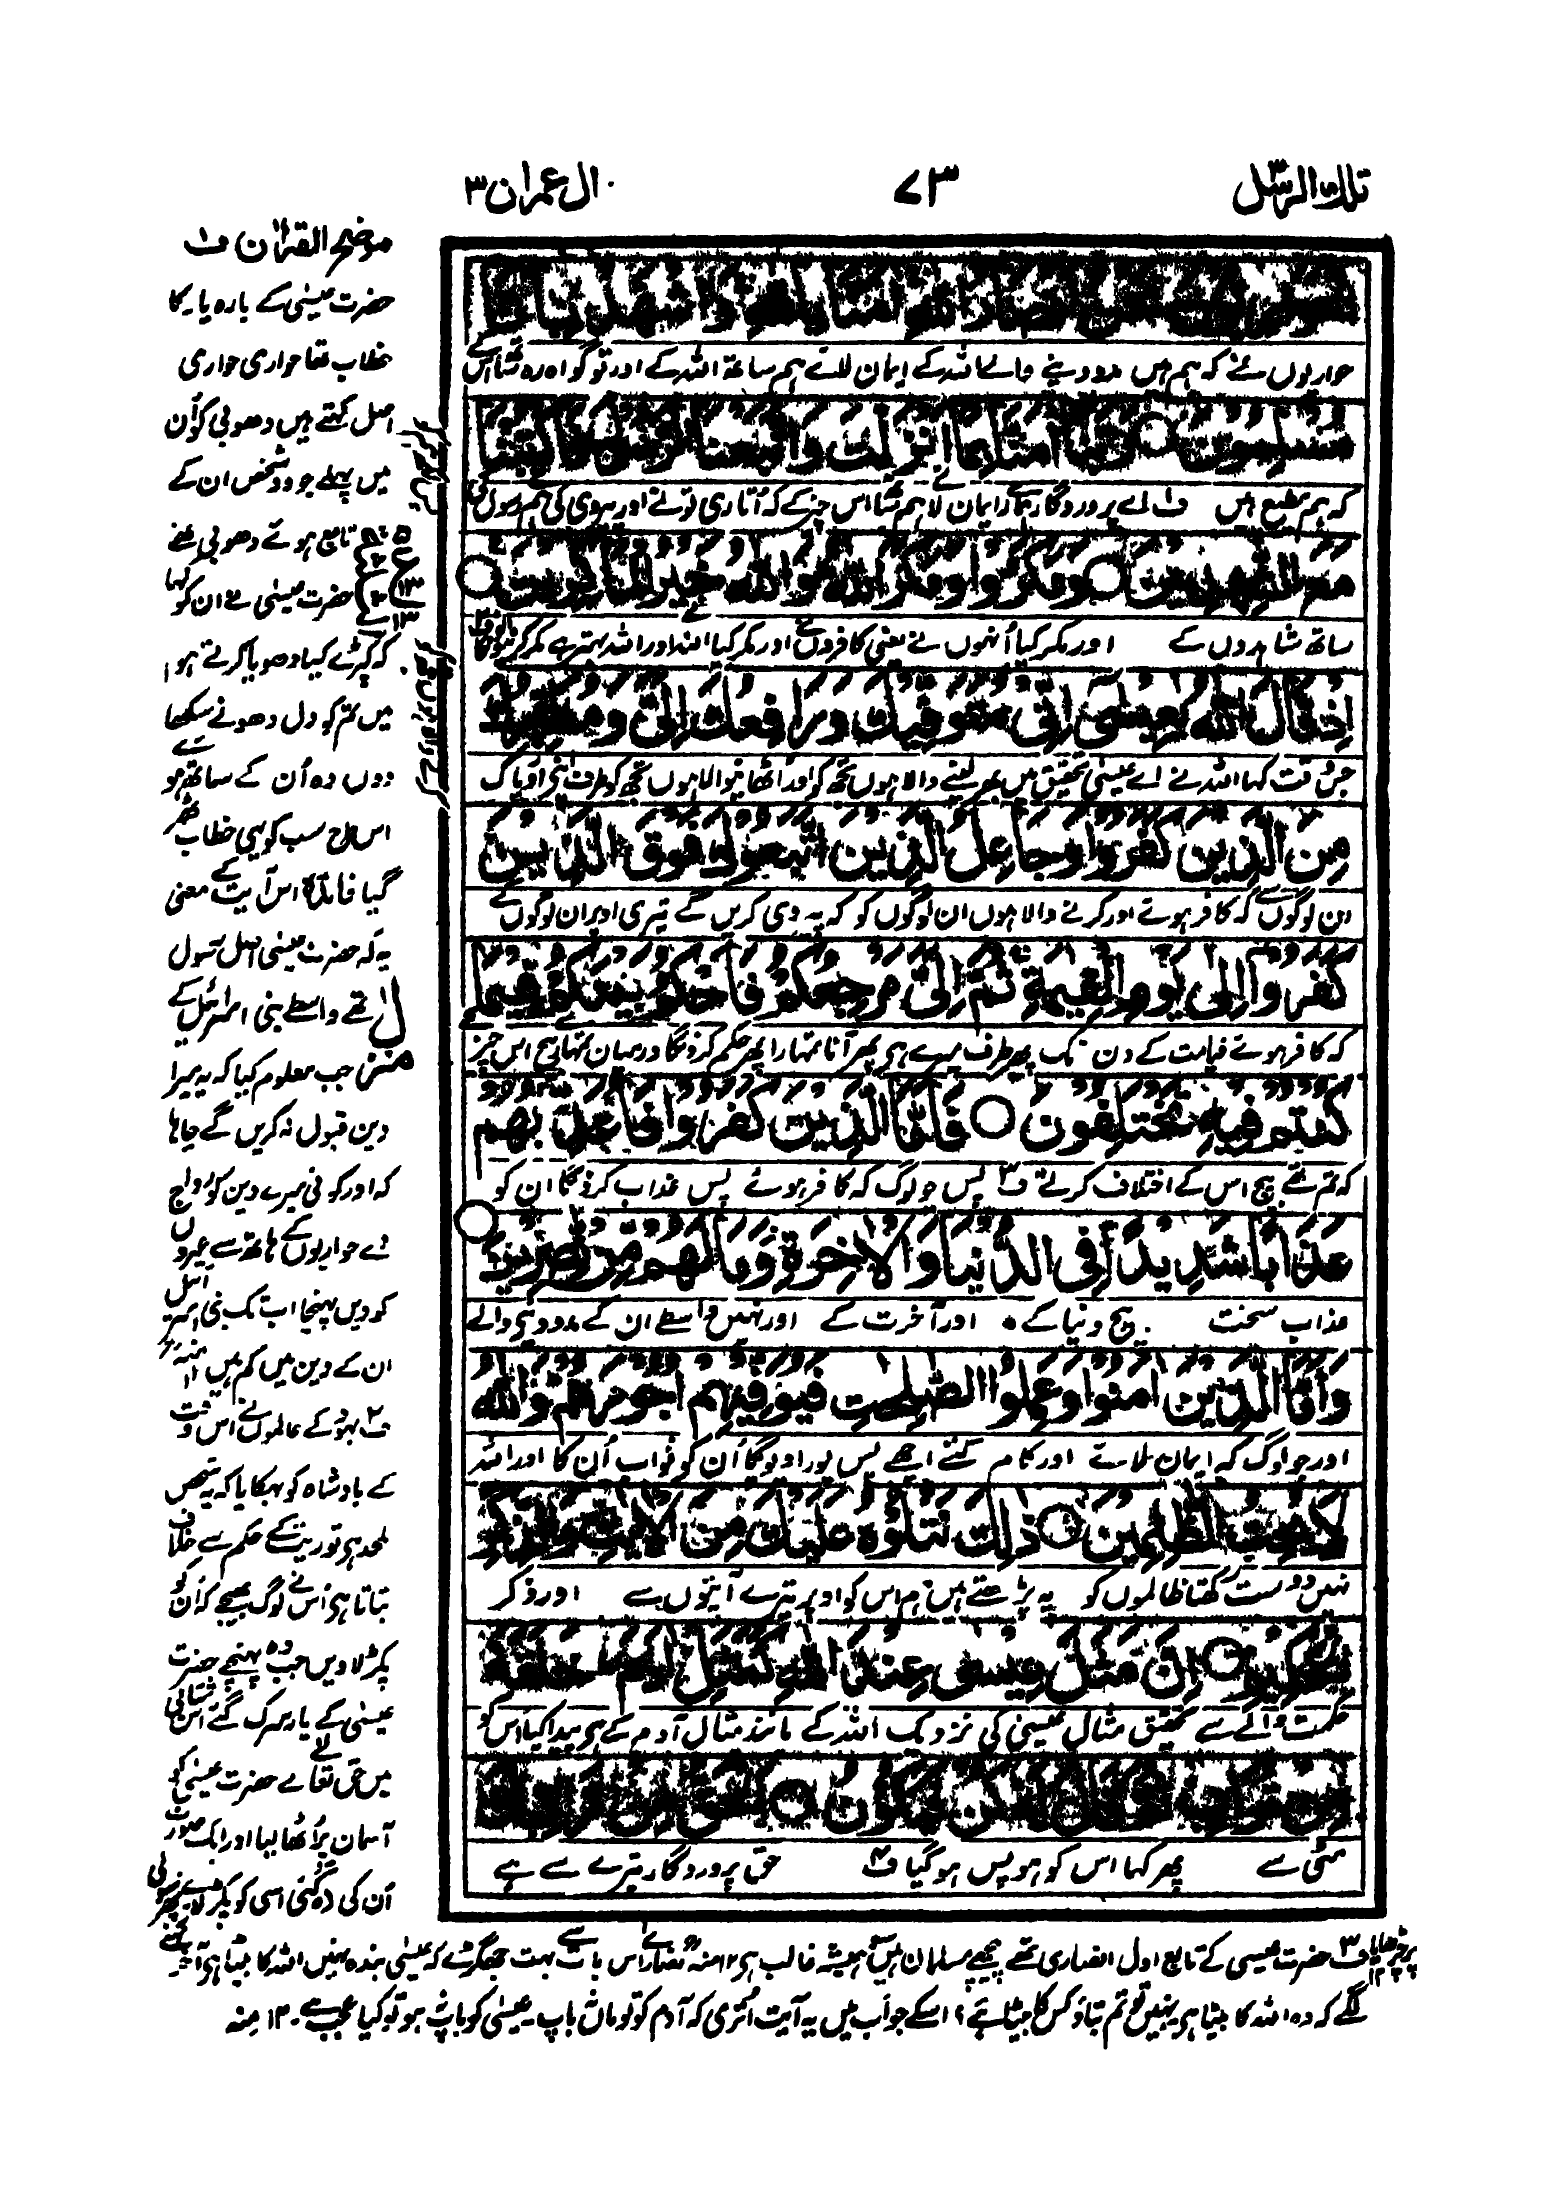 تلك الرسل ٣
٧٣
ال عمران ٣
الله امنا بالله واشهد بانا
حواریوں نے کہ ہم ہیں مدد دینے والے اللہ کے ایمان لائے ہم ساتھ اللہ کے اور تو گواہ رہ
مسلمون ○ ربنا امنا بما انزلت واتبعنا الرسول فاكتبنا
کہ ہم مطیع ہیں ف اے پروردگار ہمارے ایمان لائے ہم ساتھ اس چیز کے کہ اُتاری تو نے اور پیروی کی ہم نے رسول کی
مع الشهدين ○ ومكروا ومكر الله والله خير الماكرين ○
ساتھ شاہدوں کے اور مکر کیا اُنہوں نے یعنی کافروں نے اور مکر کیا اللہ اور اللہ بہتر ہے مکر کرنے والوں کا
اذ قال الله يعيسى اني متوفيك ورافعك الي ومطهرك
جس وقت کہا اللہ نے اے عیسیٰ تحقیق میں پھر لینے والا ہوں تجھ کو اور اُٹھانیوالا ہوں تجھ کو طرف اپنی اور پاک
من الذين كفروا وجاعل الذين اتبعوك فوق الذين
ان لوگوں سے کہ کافر ہوئے اور کرنے والا ہوں ان لوگوں کو کہ پیروی کریں گے تیری اوپر ان لوگوں کے
كفروا الى يوم القيمة ثم الي مرجعكم فاحكم بينكم فيما
کہ کافر ہوئے قیامت کے دن تک پھر طرف میرے ہی پھر آنا تمہارا پھر حکم کرونگا درمیان تمہارے بیچ اس چیز
كنتم فيه تختلفون ○ فاما الذين كفروا فاعذبهم
کہ تم تھے بیچ اس کے اختلاف کرتے ف٣ پس جو لوگ کہ کافر ہوئے پس عذاب کرونگا ان کو
عذابا شديدا في الدنيا والاخرة وما لهم من نصرين ○
عذاب سخت بیچ دنیا کے اور آخرت کے اور نہیں واسطے ان کے مدد دینے والے
واما الذين امنوا وعملوا الصلحت فيوفيهم اجورهم والله
اور جو لوگ کہ ایمان لائے اور کام کئے اچھے پس پورا دیوگا اُن کو ثواب اُن کا اور اللہ
لا يحب الظلمين ○ ذلك نتلوه عليك من الايت والذكر
نہیں دوست رکھتا ظالموں کو یہ پڑھتے ہیں ہم اس کو اوپر تیرے آیتوں سے اور ذکر
الحكيم ○ ان مثل عيسى عند الله كمثل ادم خلقه
حکمت والے سے تحقیق مثال عیسیٰ کی نزدیک اللہ کے مانند مثال آدم کے ہی پیدا کیا اس کو
من تراب ثم قال له كن فيكون ○ الحق من ربك
مٹی سے پھر کہا اس کو ہو پس ہو گیا ف٤ حق پروردگار تیرے سے ہے
موضح القرآن ف١
حضرت عیسیٰ کے بارہ یار کا
خطاب تھا حواری حواری
اصل کہتے ہیں دھوبی کو اُن
میں پہلے جو دو شخص ان کے
تابع ہوئے دھوبی تھے
حضرت عیسیٰ نے ان کو کہا
کہ کپڑے کیا دھویا کرتے ہو
میں تم کو دل دھونے سکھا
دوں وہ اُن کے ساتھ ہوئے
اس طرح سب کو یہی خطاب
گیا فائدہ اس آیت کے معنی
یہ کہ حضرت عیسیٰ اصل رسول
تھے واسطے بنی اسرائیل کے
جب معلوم کیا کہ یہ میرا
دین قبول نہ کریں گے چاہا
کہ اور کوئی میرے دین کو رواج
دے حواریوں کے ہاتھ سے غیروں
کو دین پہنچا اب تک بنی اسرائیل
ان کے دین میں کم ہیں ١٢ منہ
ف٢ یہود کے عالموں نے اس وقت
کے بادشاہ کو بہکایا کہ یہ شخص
ملحد ہی توریت کے حکم سے خلاف
بتاتا ہی اس نے لوگ بھیجے کہ اُن کو
پکڑ لاویں جب وہ پہنچے حضرت
عیسیٰ کے یار سرک گئے اس شتابی
میں حق تعالے حضرت عیسیٰ کو
آسمان پر اُٹھا لیا اور ایک صورت
اُن کی رہ گئی اسی کو پکڑ لائے پھر سولی
پر چڑھایا ١٢ ف٣ حضرت عیسی کے تابع اول نصاری تھے پیچھے مسلمان ہیں سو ہمیشہ غالب ہی ١٢ منہ ف٤ نصاری اس بات سے بہت جھگڑے کہ عیسیٰ بندہ نہیں اللہ کا بیٹا ہی آخر کہنے
لگے کہ وہ اللہ کا بیٹا ہی نہیں تو تم بتاؤ کس کا بیٹا ہے؟ اسکے جواب میں یہ آیت اُتری کہ آدم کو تو ماں نہ باپ عیسیٰ کو باپ نہ ہو تو کیا عجب ہے ١٢ منہ